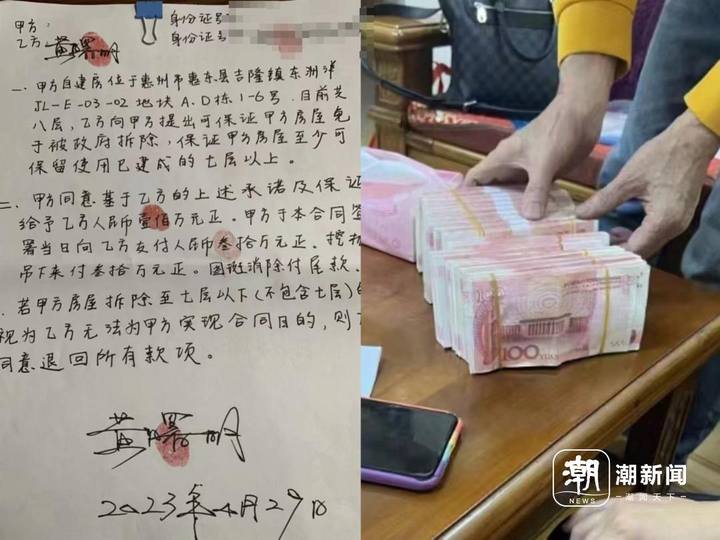 甲方:
身份证号
乙方: 黄曙明
身份证号
一. 甲方自建房位于惠州市惠东县吉隆镇东洲洋
JL-E-03-02地块A.D栋1-6号. 目前共
八层, 乙方向甲方提出可保证甲方房屋免
于被政府拆除, 保证甲方房屋至少可
保留使用已建成的七层以上。
二. 甲方同意基于乙方的上述承诺及保证
给予乙方人民币壹佰万元正。甲方于本合同签
署当日向乙方支付人民币叁拾万元正。挖机
吊下来付叁拾万元正。图斑消除付尾款.
若甲方房屋拆除至七层以下(不包含七层)的
视为乙方无法为甲方实现合同目的, 则
同意退回所有款项。
黄曙明
2023年4月29日
100 YUAN
潮 NEWS
潮新闻
潮闻天下